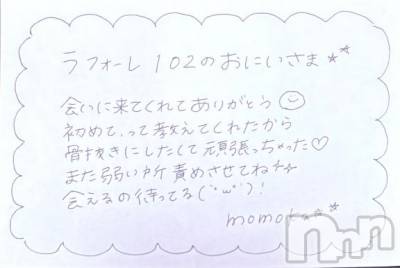 ラフォーレ 102のおにいさま☆★
会いに来てくれてありがとう
初めて、って教えてくれたから
骨抜きにしたくて頑張っちゃった♡
また弱い所責めさせてね
会えるの待ってる(´˘ω˘`)!
momoka